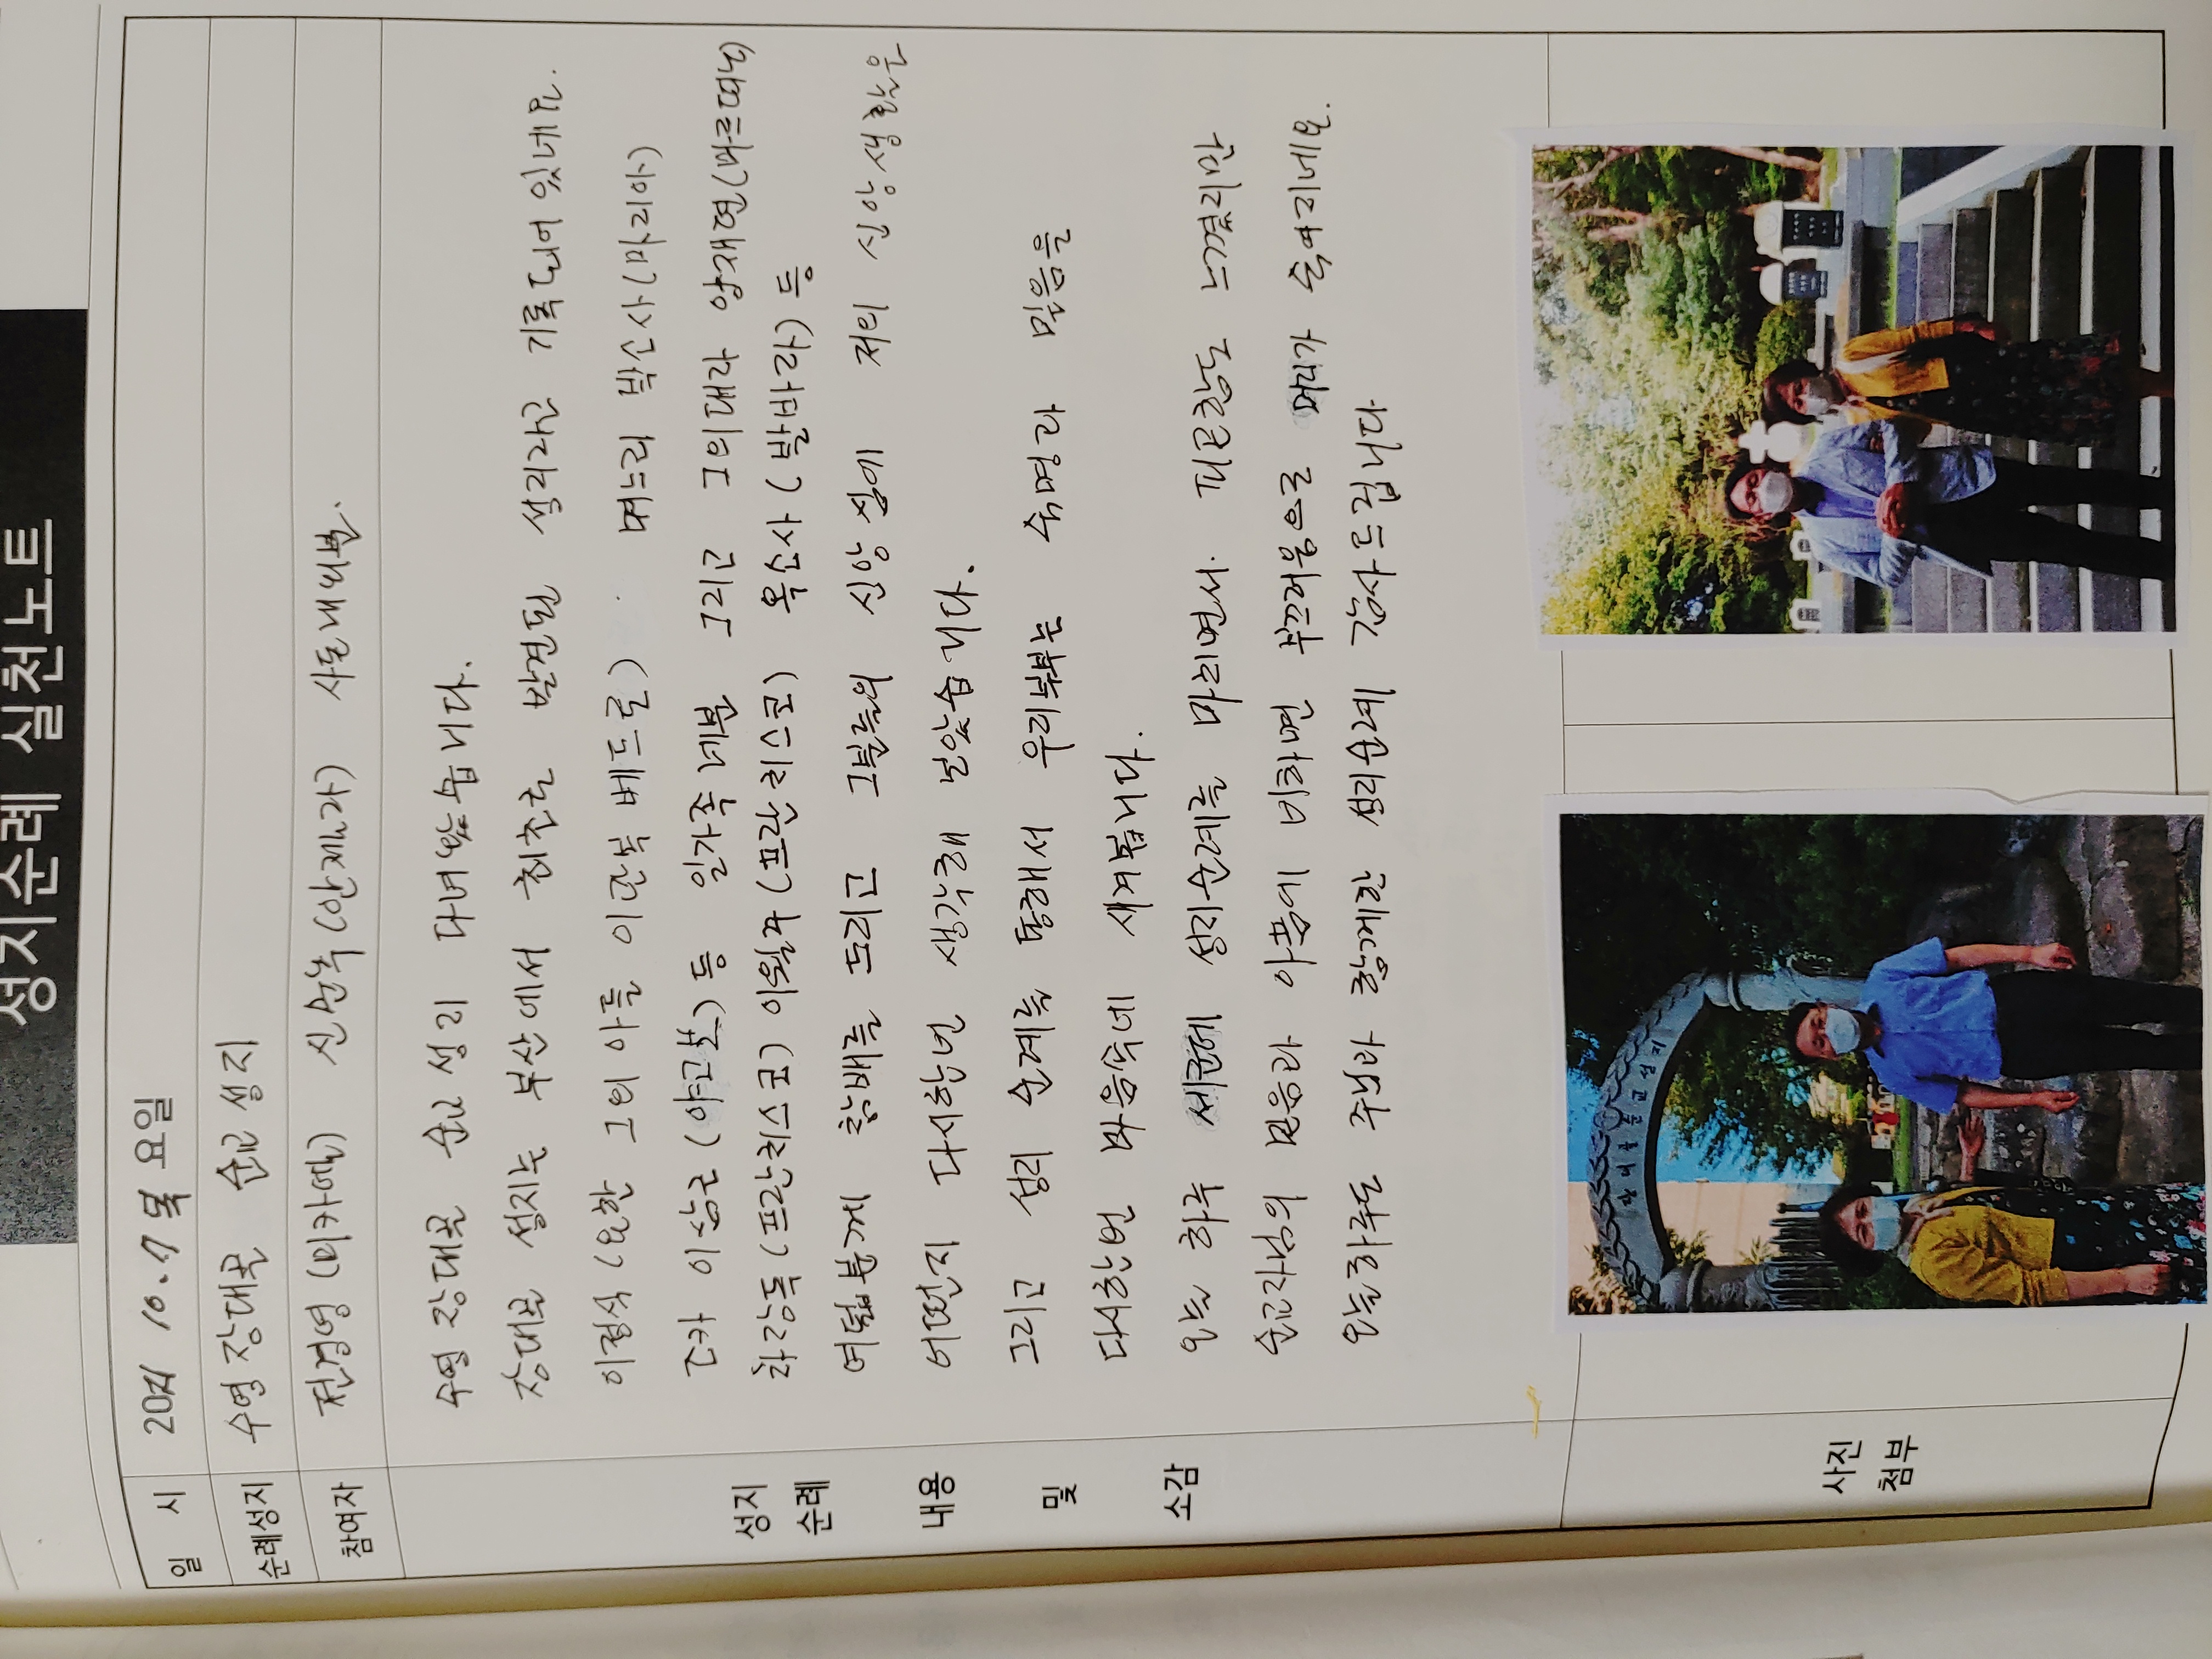 성지순례 실천노트
일 시 2021 10.7 목 요일
순례성지 수영 장대골 순교 성지
참여자 전경영 (미카엘) 신순축 (안젤라) 사도대비분.
성지
순례
내용
및
소감
수영 장대골 순교 성지 다녀왔습니다.
장대골 성지는 부산에서 최초로 발견된 성지라고 기록되어 있네요.
이정식 (요한) 그의 아들 이관복 베드로) 며느리 박소사 (마리아)
조카 이삼근 (야고보) 등 일가족 네분 그리고 그의대자 양재현 (마르띠노)
차장득 (프란치스코) 이월주 (프란치스코) 옥소사 (발바라) 등
여덟분께 참배를 드리고 그분들의 신앙심에 저의 신앙생활은
어떤지 다시한번 생각해 보았습니다.
그리고 성지 순례를 통해서 우리부부는 숙명과 믿음을
다시한번 마음속에 새겨봅니다.
오늘 하루 세곳에 성지순례를 마치면서. 피곤함도 느껴지만
순교자님의 믿음과 아픔에 비하면 부끄러움으로 머리가 숙여지네요.
오늘하루도 주님과 함께한 성지순례 감사드립니다
사진
첨부
장대골순교성지